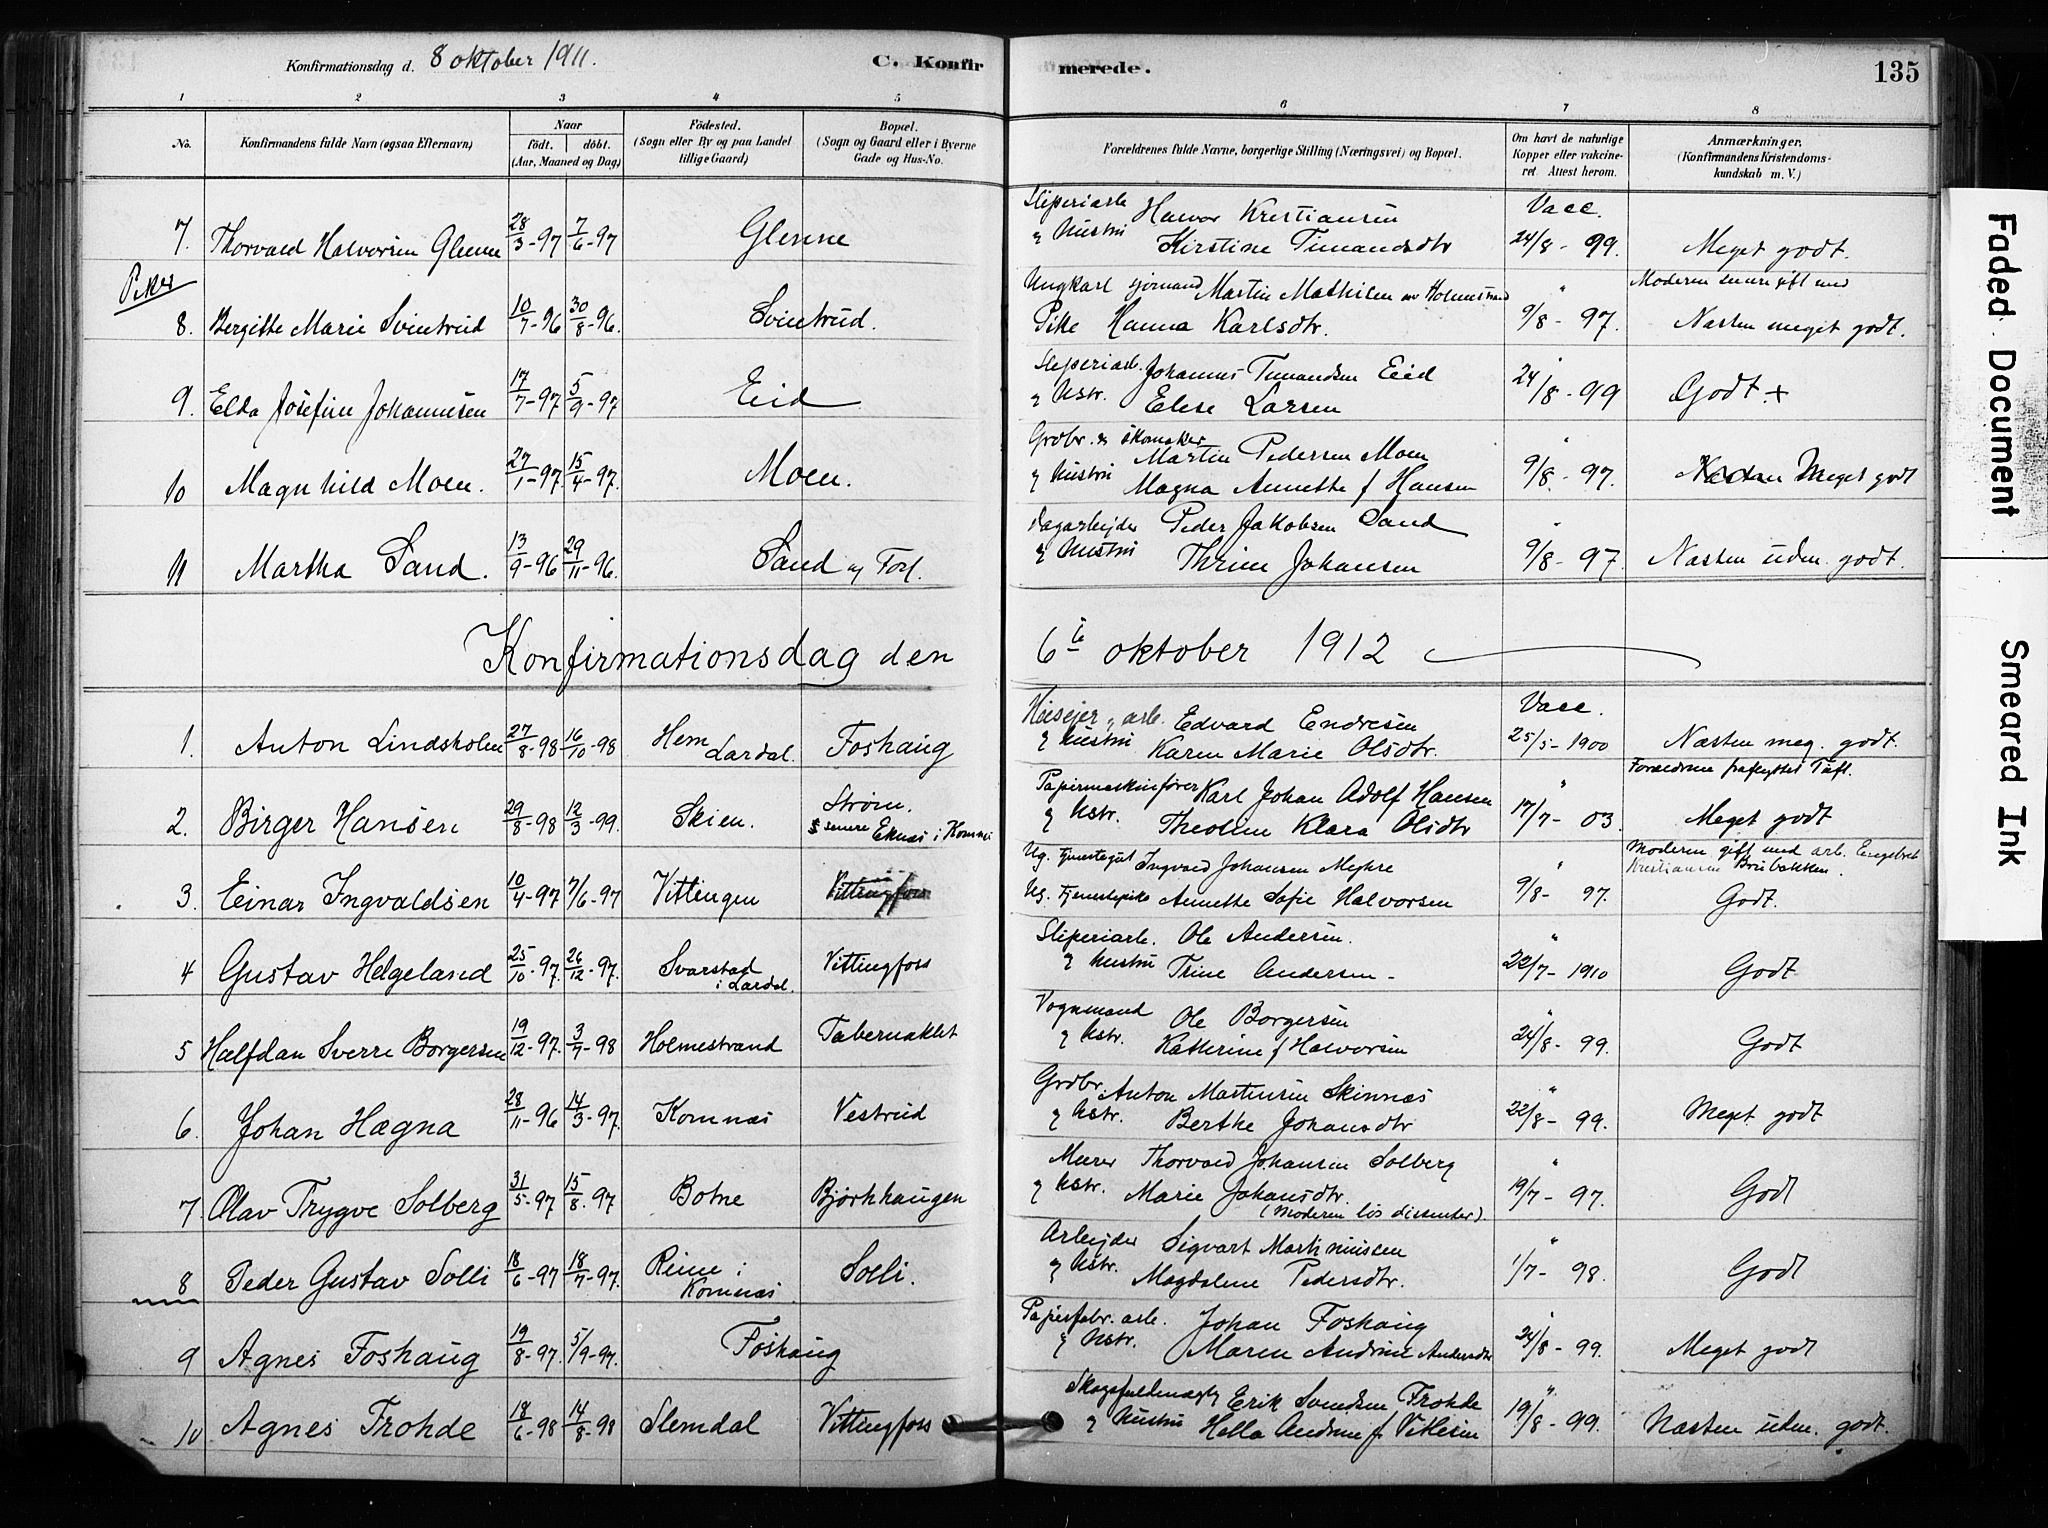 Konfirmationsdag d. 8 oktober 1911. C. Konfir merede. 135
1 2 3 4 5 6 7 8
No. Konfirmandens fulde Navn (ogsaa Efternavn) Naar födt. döbt. (Aar, Maaned og Dag) Födested. (Sogn eller By og paa Landet tillige Gaard) Bopæl. (Sogn og Gaard eller i Byerne Gade og Hus-No. Forældrenes fulde Navne, borgerlige Stilling (Næringsvei) og Bopæl. Om havt de naturlige Kopper eller vakcineret. Attest herom. Anmærkninger. (Konfirmandens Kristendomskundskab m. V.)
7. Thorvald Halvorsen Glenne 28/3-97 7/6-97 Glenne Sliperiarb. Halvor Kristiansen Vacc.
& Hustru Kirstine Timandsdtr 24/8-99. Meget godt.
Piker
Ungkarl sjømand Martin Mathisen av Holmestrand " Moderen senere gift med
8. Bergitte Marie Svintrud 10/7-96 30/8-96. Svintrud. Pike Hanna Karlsdtr. 9/8-97. Næsten meget godt.
Sliperiarb. Johannes Timandsen Eid "
9. Elda Josefine Johannesen 17/7-97 5/9-97 Eid & Hstr. Elese Larsen 24/8-99 Godt +
Grdbr. & skomaker Martin Pedersen Moen "
10 Magnhild Moen. 27/1-97. 15/4-97. Moen. & Hustru Magna Annette f Hansen 9/8-97. Næsten Meget godt
Dagarbejder Peder Jakobsen Sand "
11 Martha Sand. 13/9-96 29/11-96. Sand & Torl. & Hustru Thrine Johansen 9/8-97. Næsten uden. godt.
Konfirmationsdag den 6te oktober 1912
Husejer, arb. Edvard Endresen Vacc.
1. Anton Lindsholm 27/8-98 16/10-98 Hem Lardal. Foshaug & Hustru Karen Marie Olsdtr. 25/5-1900 Næsten meg. godt.
Papirmaskinfører Karl Johan Adolf Hansen " Forældrene fraflyttet
2. Birger Hansen 29/8-98 12/3-99. Skien. Strøm. senere Eknæs i Komnæs & Hstr. Theoline Klara Olsdtr 17/7-03. Meget godt
Ug. Tjenestegut Ingvald Johansen Meghre " Moderen gift med arb. Engebret Kristiansen Brubakken.
3. Einar Ingvaldsen 10/4-97 7/6-97 Vittingen Vittingfoss Ug. Tjenestepike Annette Sofie Halvorsen 9/8-97. Godt.
Sliperiarb. Ole Andersen. "
4 Gustav Helgeland 25/10-97. 26/12-97. Svarstad i Lardal. Vittingfoss & Hustru Trine Andersen - 22/7-1910 Godt
Vognmand Ole Borgersen "
5 Halfdan Sverre Borgersen 19/12-97. 3/7-98 Holmestrand Tabernaklet & Hstr. Kathrine f Halvorsen 24/8-99. Godt
Grdbr. Anton Martinsen Skinnæs "
6. Johan Hagna 28/11-96 14/3-97. Komnæs Vestrud & Hstr. Berthe Johansdtr 22/8-99. Meget godt
Murer Thorvald Johansen Solberg "
7. Olav Trygve Solberg 31/5-97 15/8-97 Botne Bjørkhaugen & Hstr. Marie Johansdtr. (Moderen løs dissenter). 19/7-97. Godt
Arbejder Sigvart Martiniussen "
8 Peder Gustav Solli 18/6-97 18/7-97. Reine i Komnæs Solli. & Hstr. Magdalene Pedersdtr. 1/7-98. Godt
Papirfabr. arb. Johan Foshaug "
9 Agnes Foshaug 19/8-97. 5/9-97. Foshaug & Hstr. Maren Andrine Andersdtr 24/8-99. Meget godt
Skogsfuldmægtig Erik Svendsen Frohde "
10 Agnes Frohde 18/6-98 14/8-98 Slemdal Vittingfoss & Hustru Hella Andrine f. Vitlesen 19/8-99. Næsten uden. godt.
Faded Document
Smeared Ink